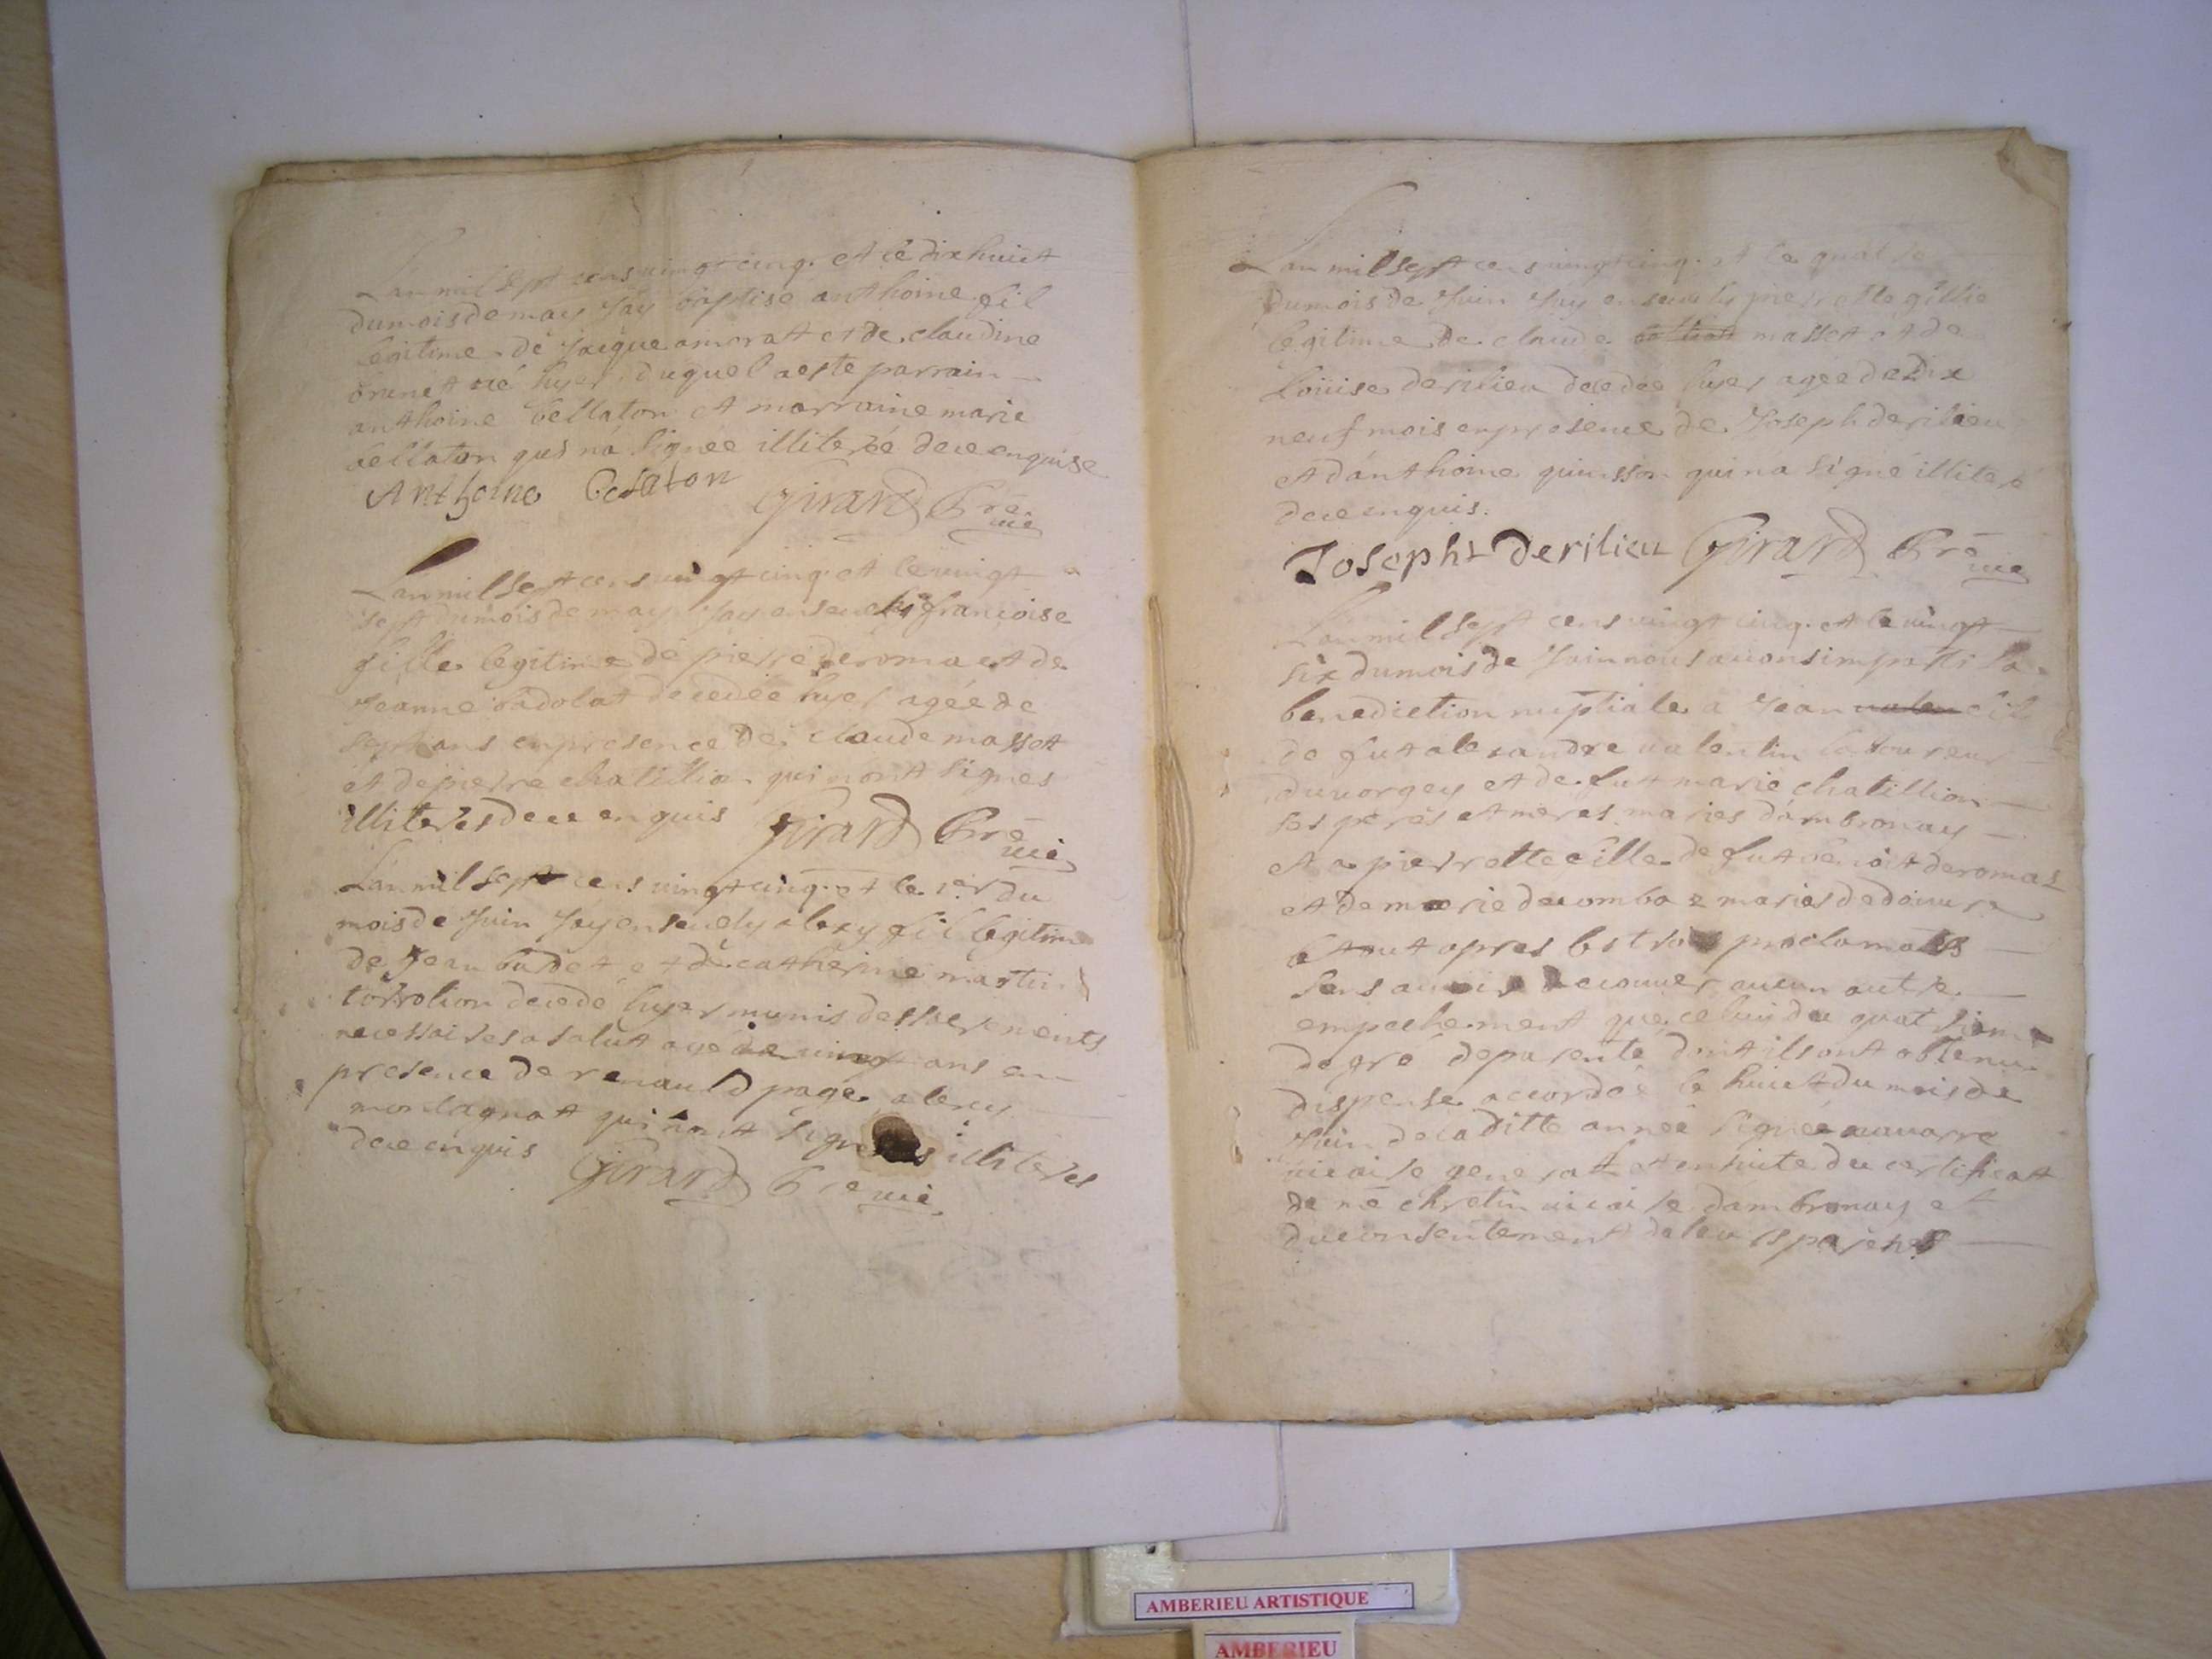 Lan mil sept cens vingt cinq. et le dix huict
du mois de may Jay baptise anthoine fil
legitime de Jacque amoratt et de claudine
brunet né hyer, duquel a este parrain
anthoine bellaton et marraine marie
bellaton qui na signée illiterée de ce enquise
Anthoine Belaton Girard Bre vic
Lan mil sept cens vingt cinq. et le vingt
sept du mois de may Jay ensevely francoise
fille legitime de pierre deroma et de
Jeanne badolat decedée hyer agée de
sept ans en presence de claude massett
et de pierre chatillion qui nont signes
illiteres de ce enquis Girard Bre vic
Lan mil sept cens vingt cinq. et le 1er du
mois de Juin Jay ensevely alexy fil legitime
de Jean burdet et de catherine martin
decedé hyer munis des sacrements
necessaires a salut agé de vingt ans en
presence de renauld page alexy
montagnat qui nont signes illiteres
de ce enquis Girard Bre vic
Lan mil sept cens vingt cinq. et le quatre
du mois de Juin Jay ensevely pierrette fillie
legitime de claude massett et de
Louise derilieu decedée hyer agée de dix
neuf mois en presence de Joseph derilieu
et danthoine quinsson qui na signé illiteré
de ce enquis.
Joseph derilieu Girard Bre vic
Lan mil sept cens vingt cinq. et le vingt
six du mois de Juin nous avons imparti la
benediction nuptiale a Jean valen fil
de fut alexandre valentin laboureur
du vorgey et de fut marie chatillion
ses peres et meres maries dambronay
et a pierrette fille de fut benoit deromas
et de marie decombaz maries de douvre
le tout apres les trois proclamats
sans avoir decouver aucun autre
empechement que celuy du quatriem
degré de parenté dont ils ont obtenu
dispense accordée le huict du mois de
Juin de la ditte année signée navarre
vicaire general et en suite du certificatt
de me chretin vicaire dambronay et
du consentement de leurs parens
AMBERIEU ARTISTIQUE
AMBERIEU